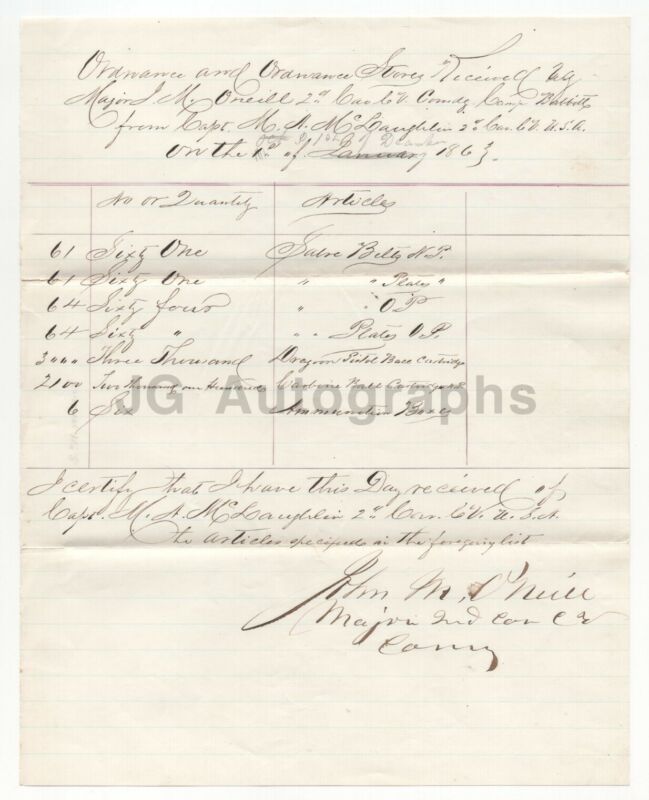 Ordnance and Ordnance Stores Received by
Major J. M. Oneill 2d Cav. C. V. Comdg Camp Babbitt
from Capt. M. A. McLaughlin 2d Cav. C. V. U.S.A.
31st of
on the of January 1863.
No or Quantity Articles
61 Sixty One Sabre Belts N.P.
61 Sixty One " " Plates "
64 Sixty four " " O P
64 Sixty " " " Plates O. P.
3""" Three Thousand Dragoon Pistol Ball Cartridge
2100 Two thousand one Hundred Carbine Ball Cartridges
6 Six Ammunition Boxes
JG Autographs
I certify that I have this Day received of
Capt. M. A. McLaughlin 2d Cav. C. V. U. S. A.
the articles specified in the foregoing list
John M. O'Neill
Major 2nd Cav C V
Comg